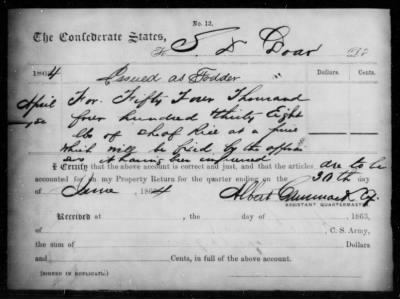 No. 12.
The Confederate States,
To S. D. Doar DR
1864 Issued as Fodder Dollars. Cents.
April For Fifty Four Thousand
four hundred thirty Eight
lbs of Sheaf Rice at a price
which will be fixed by the
it having been
I Certify that the above account is correct and just, and that the articles are to be
accounted for on my Property Return for the quarter ending on the 30th day
of June 1864 Albert
ASSISTANT QUARTERMASTER
Received at , the day of 1863,
of , C. S. Army,
the sum of Dollars
and Cents, in full of the above account.
[SIGNED IN DUPLICATE.]